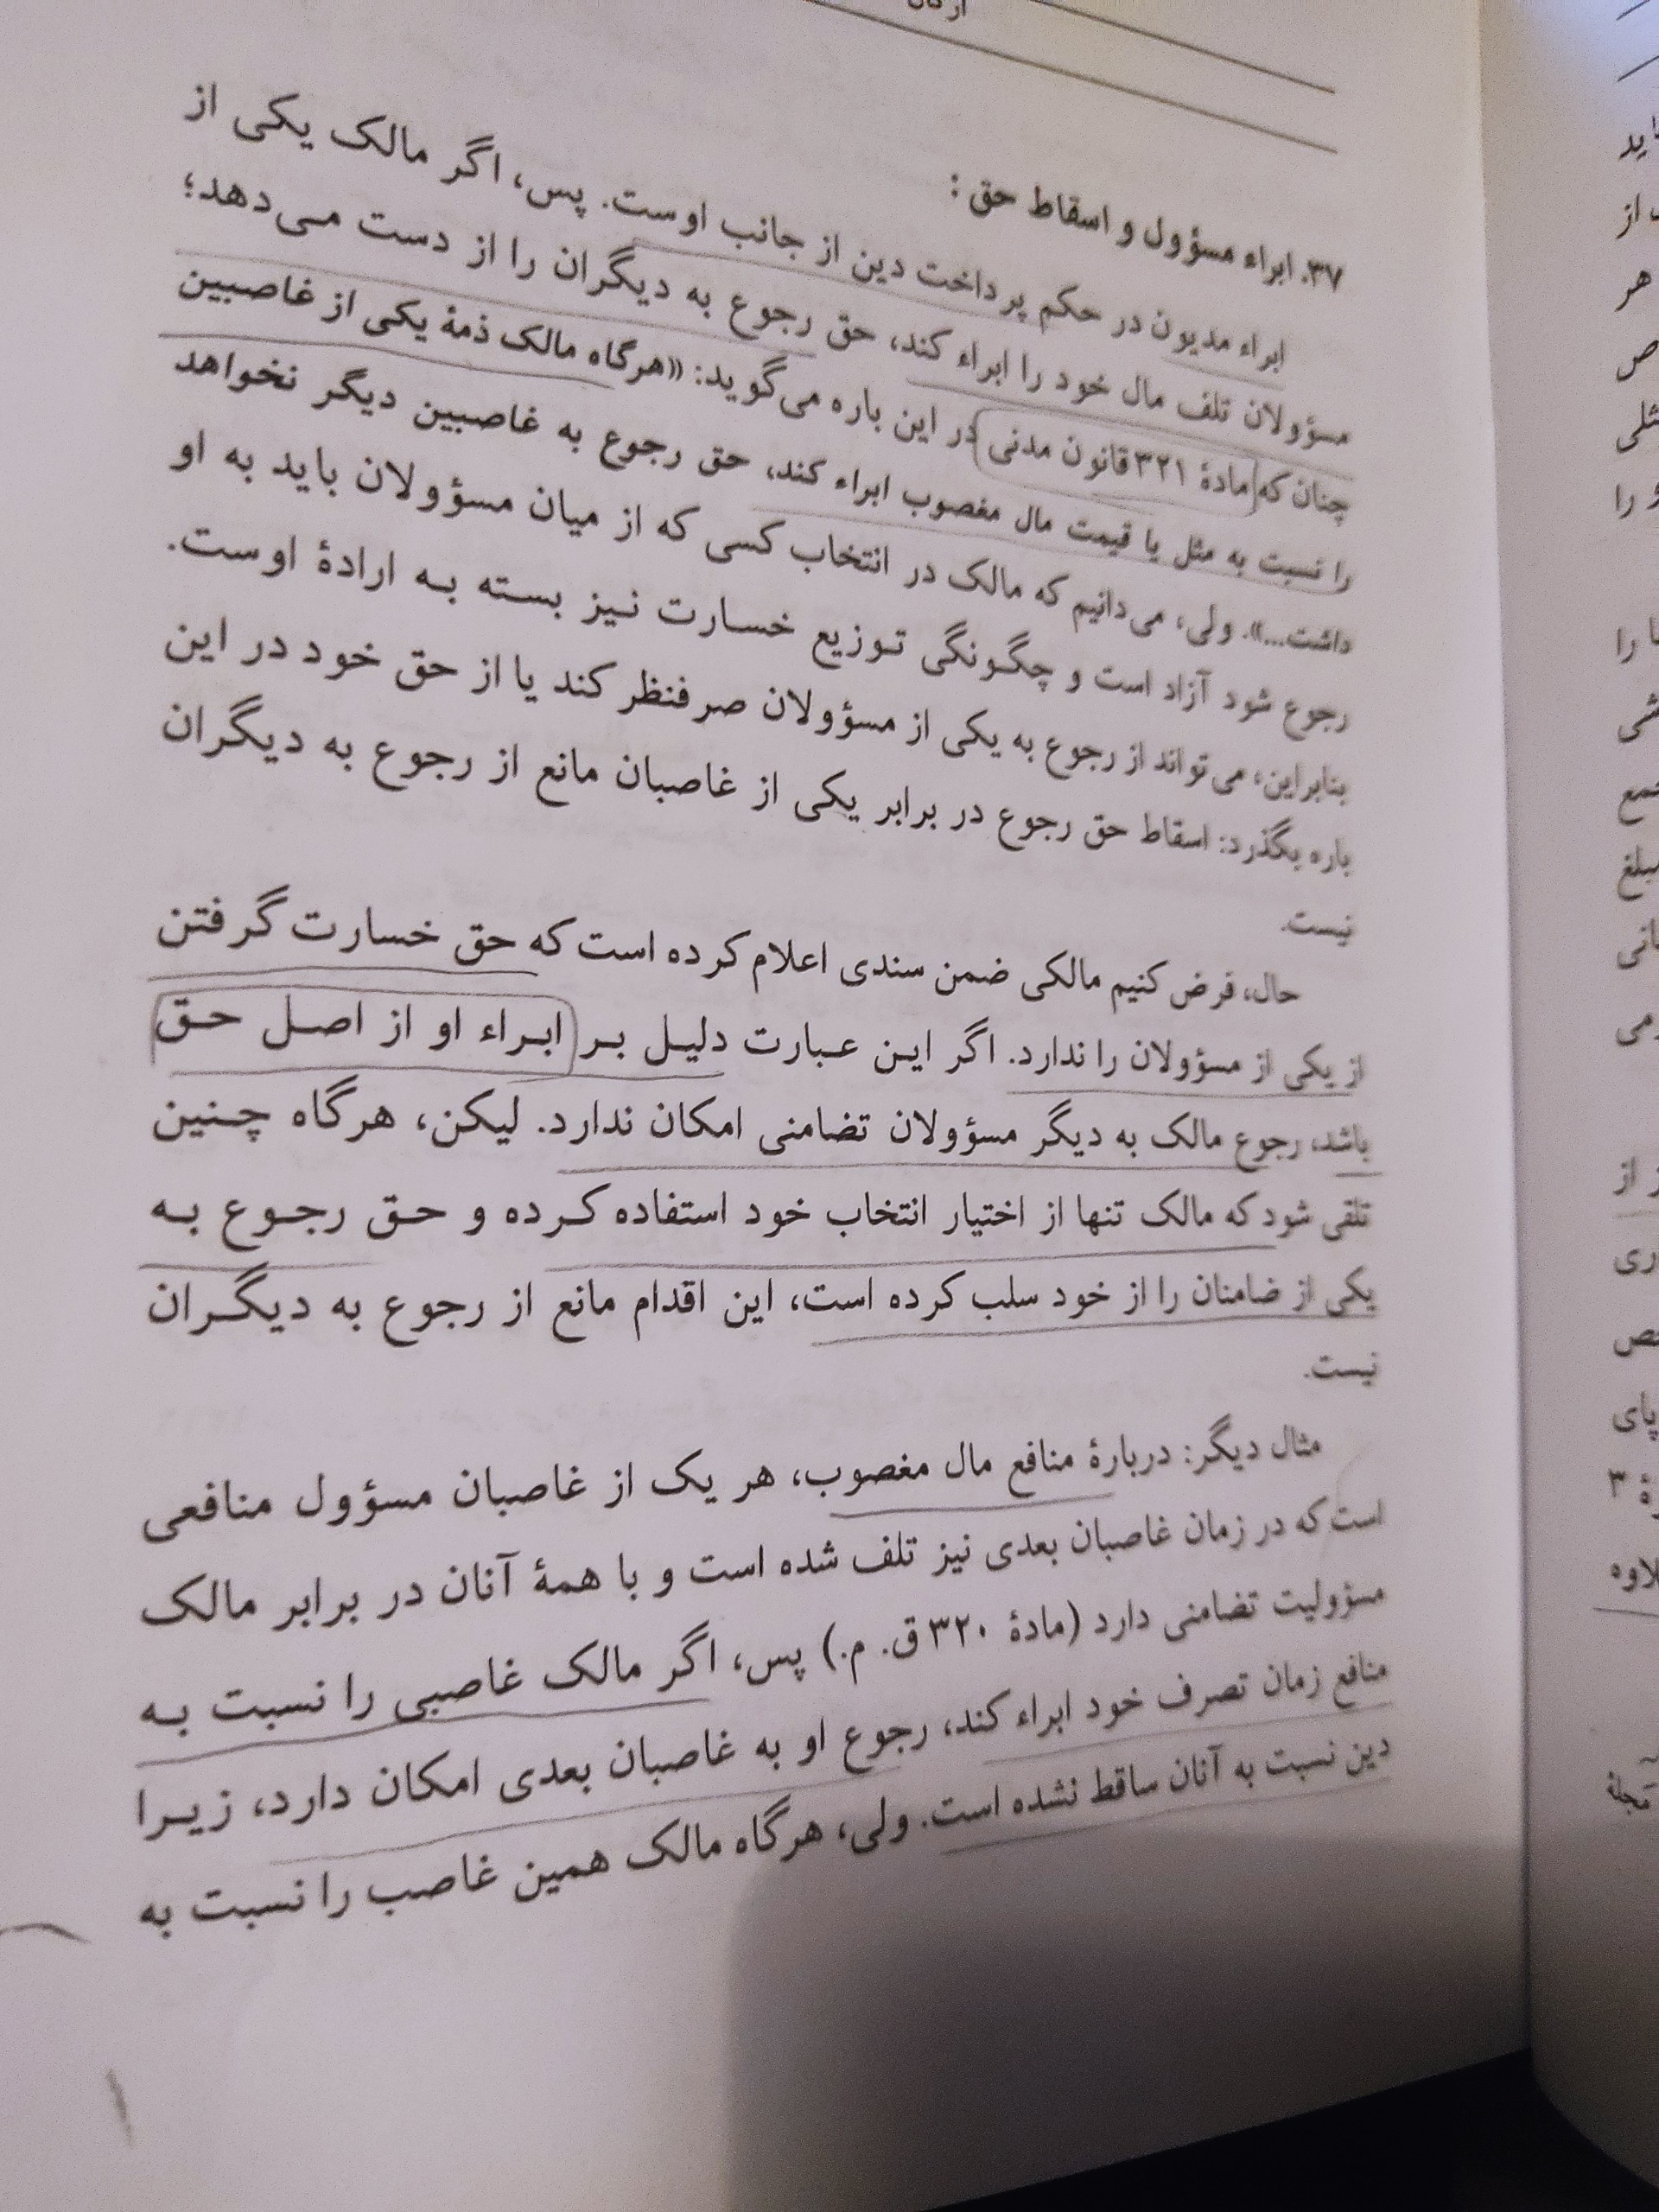 ۳۷. ابراء مسؤول و اسقاط حق:
ابراء مدیون در حکم پرداخت دین از جانب اوست. پس، اگر مالک یکی از
مسؤولان تلف مال خود را ابراء کند، حق رجوع به دیگران را از دست می‌دهد؛
چنان که مادهٔ ۳۲۱ قانون مدنی در این باره می‌گوید: «هرگاه مالک ذمهٔ یکی از غاصبین
را نسبت به مثل یا قیمت مال مغصوب ابراء کند، حق رجوع به غاصبین دیگر نخواهد
داشت...». ولی، می‌دانیم که مالک در انتخاب کسی که از میان مسؤولان باید به او
رجوع شود آزاد است و چگونگی توزیع خسارت نیز بسته به ارادهٔ اوست.
بنابراین، می‌تواند از رجوع به یکی از مسؤولان صرفنظر کند یا از حق خود در این
باره بگذرد: اسقاط حق رجوع در برابر یکی از غاصبان مانع از رجوع به دیگران
نیست.
حال، فرض کنیم مالکی ضمن سندی اعلام کرده است که حق خسارت گرفتن
از یکی از مسؤولان را ندارد. اگر این عبارت دلیل بر ابراء او از اصل حق
باشد، رجوع مالک به دیگر مسؤولان تضامنی امکان ندارد. لیکن، هرگاه چنین
تلقی شود که مالک تنها از اختیار انتخاب خود استفاده کرده و حق رجوع به
یکی از ضامنان را از خود سلب کرده است، این اقدام مانع از رجوع به دیگران
نیست.
مثال دیگر: دربارهٔ منافع مال مغصوب، هر یک از غاصبان مسؤول منافعی
است که در زمان غاصبان بعدی نیز تلف شده است و با همهٔ آنان در برابر مالک
مسؤولیت تضامنی دارد (مادهٔ ۳۲۰ ق. م.) پس، اگر مالک غاصبی را نسبت به
منافع زمان تصرف خود ابراء کند، رجوع او به غاصبان بعدی امکان دارد، زیرا
دین نسبت به آنان ساقط نشده است. ولی، هرگاه مالک همین غاصب را نسبت به